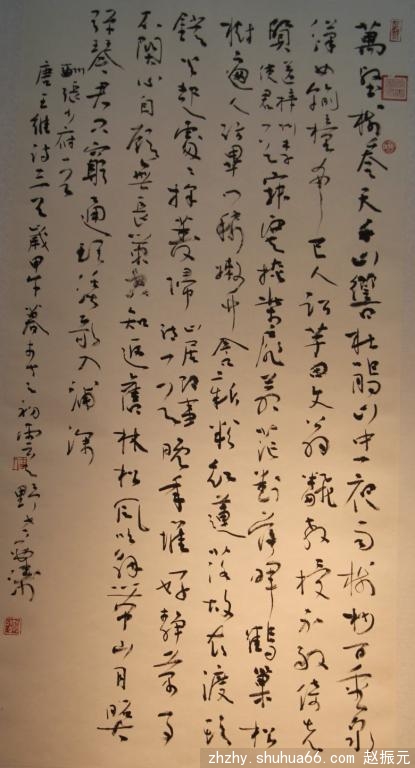 萬壑樹參天千山響杜鵑山中一夜雨樹杪百重泉
漢女輸橦布巴人訟芋田文翁翻教授不敢倚先
賢送梓州李使君一首寂寞掩柴扉蒼茫對落暉鶴巢松
樹遍人訪蓽門稀嫩竹含新粉紅蓮落故衣渡頭
燈火起處處採菱歸山居即事詩一首晚年惟好靜萬事
不關心自顧無長策空知返舊林松風吹解帶山月照
彈琴君問窮通理漁歌入浦深
酬張少府一首
唐王維詩三首歲甲午暮春之初
zhzhy.shuhua66.com 赵振元